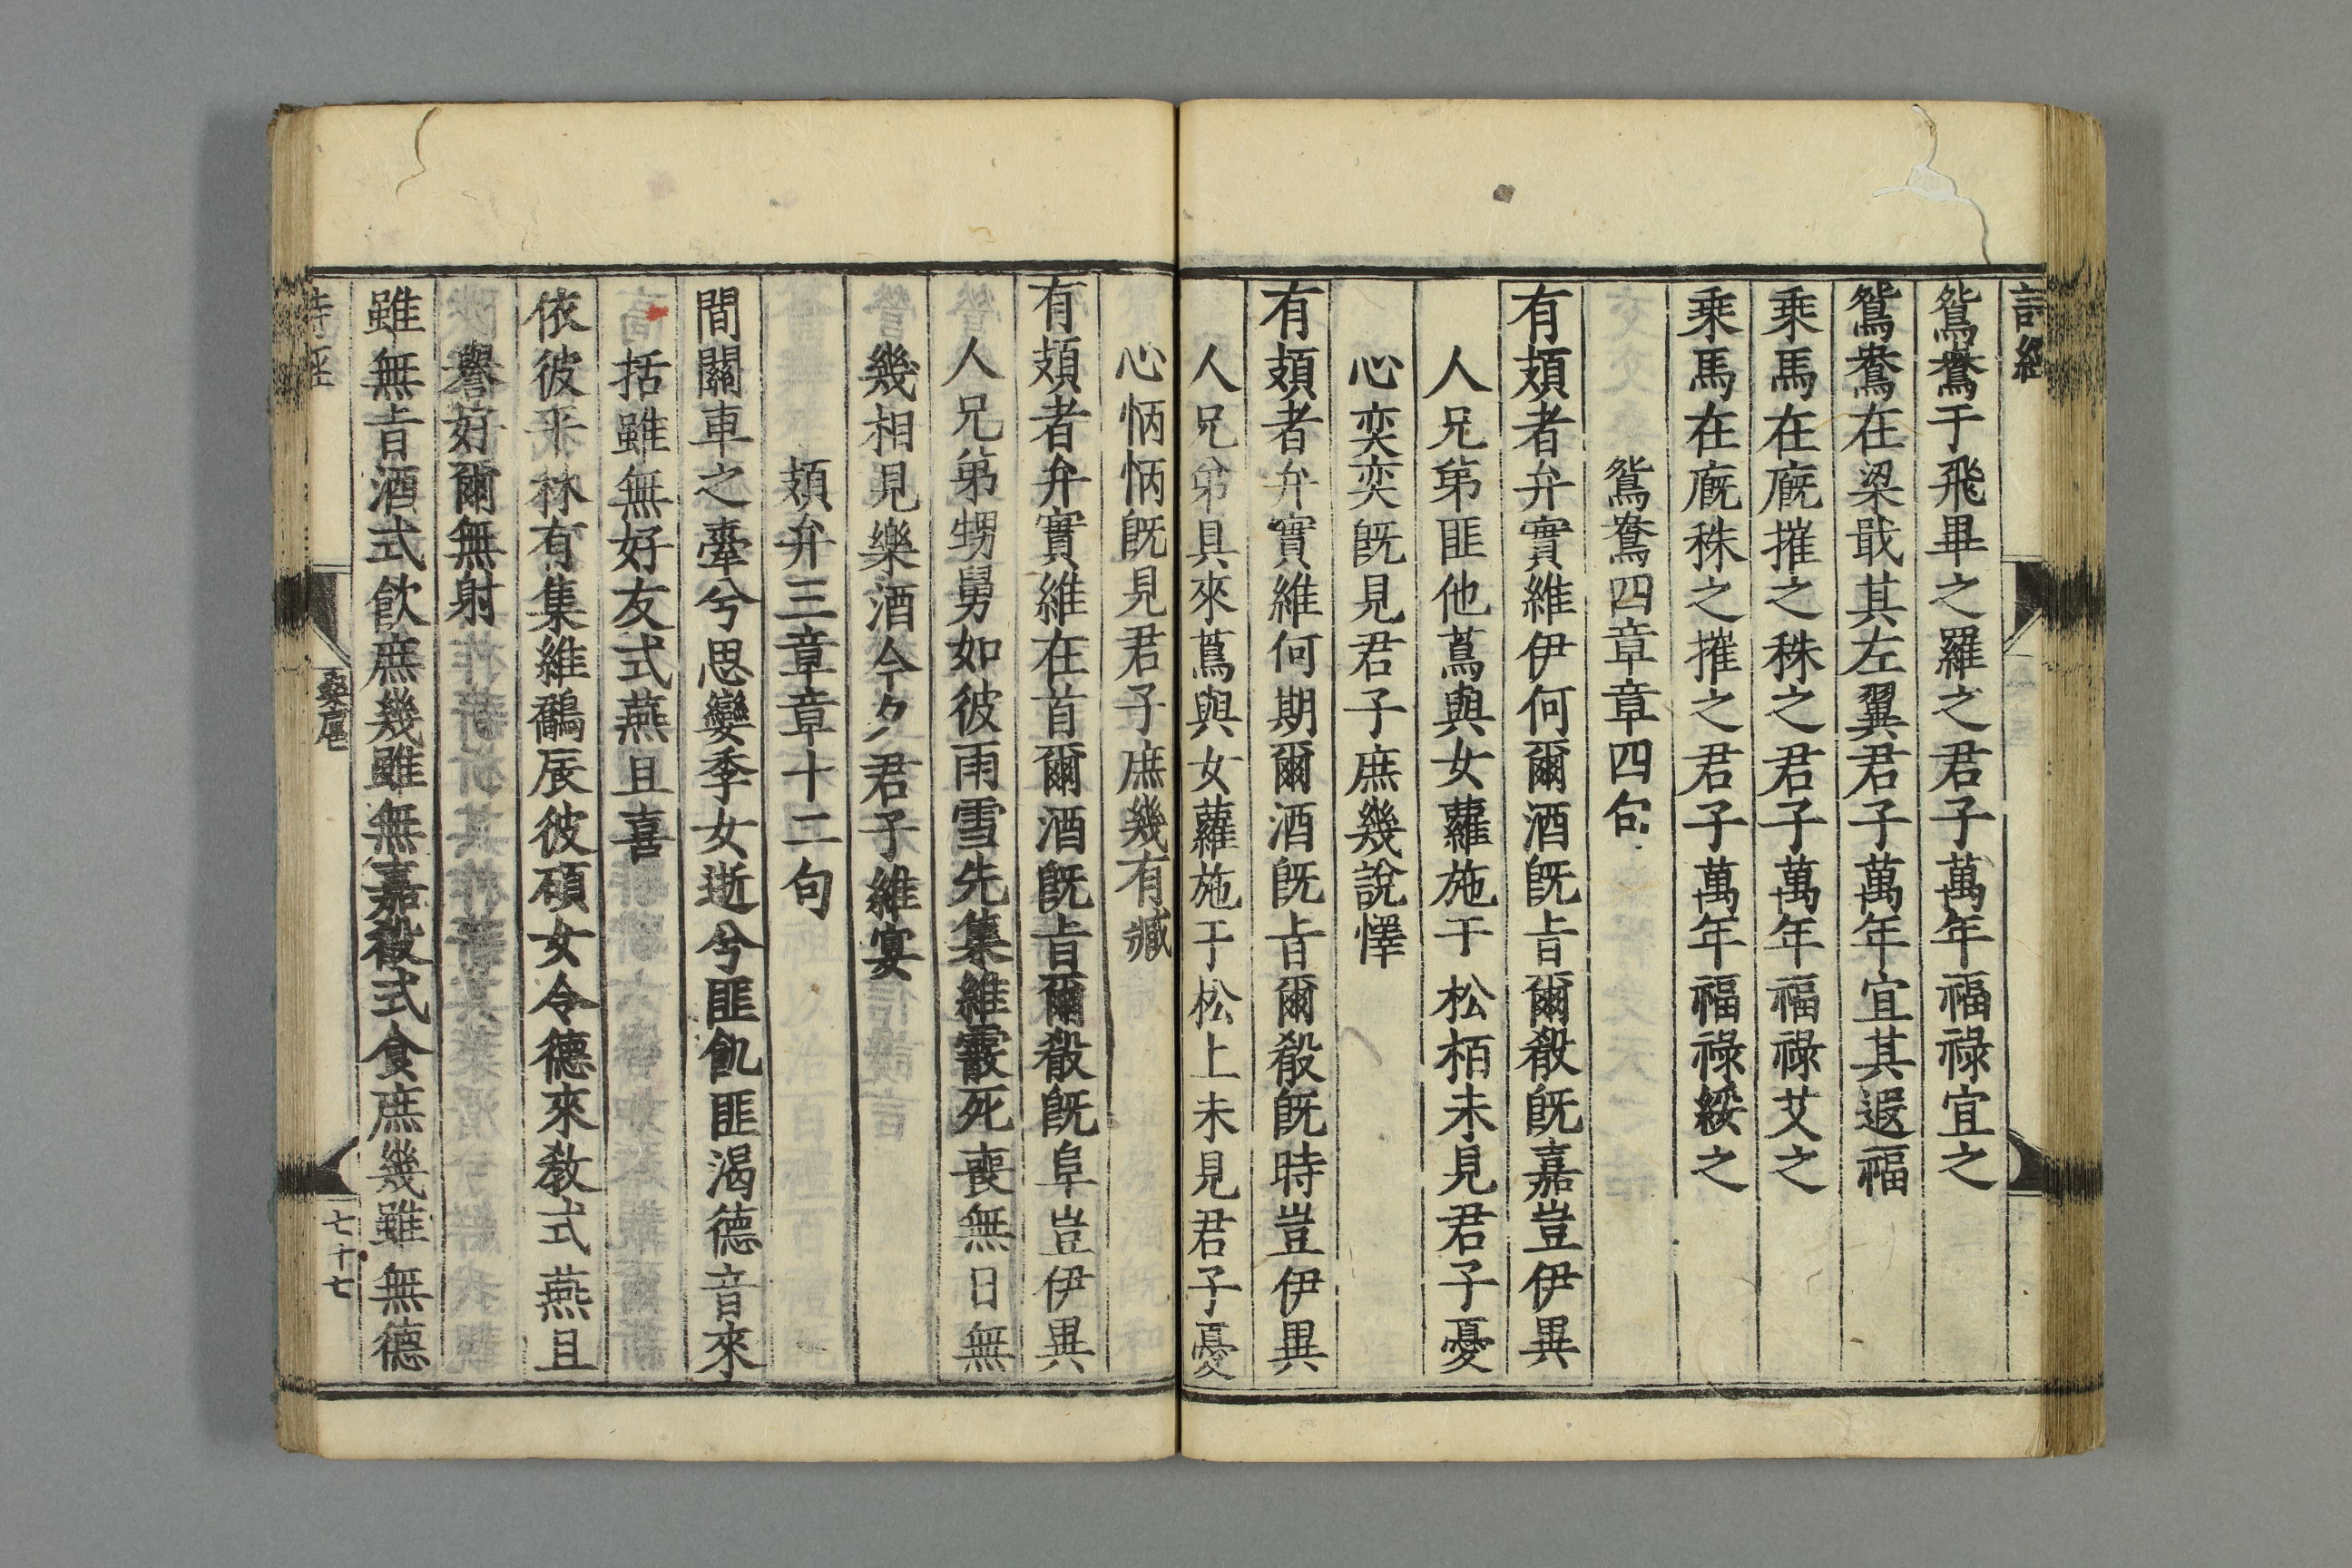 詩經
鴛鴦于飛畢之羅之君子萬年福祿宜之
鴛鴦在梁戢其左翼君子萬年宜其遐福
乘馬在廐摧之秣之君子萬年福祿艾之
乘馬在廐秣之摧之君子萬年福祿綏之
鴛鴦四章章四句
有頍者弁實維伊何爾酒旣旨爾殽旣嘉豈伊異
人兄弟匪他蔦與女蘿施于松栢未見君子憂
心奕奕旣見君子庶幾說懌
有頍者弁實維何期爾酒旣旨爾殽旣時豈伊異
人兄弟具來蔦與女蘿施于松上未見君子憂
心怲怲旣見君子庶幾有臧
有頍者弁實維在首爾酒旣旨爾殽旣阜豈伊異
人兄弟甥舅如彼雨雪先集維霰死喪無日無
幾相見樂酒今夕君子維宴
頍弁三章章十二句
間關車之舝兮思孌季女逝兮匪飢匪渴德音來
括雖無好友式燕且喜
依彼平林有集維鷮辰彼碩女令德來教式燕且
譽好爾無射
雖無旨酒式飲庶幾雖無嘉殽式食庶幾雖無德
詩經
桑扈
七十七